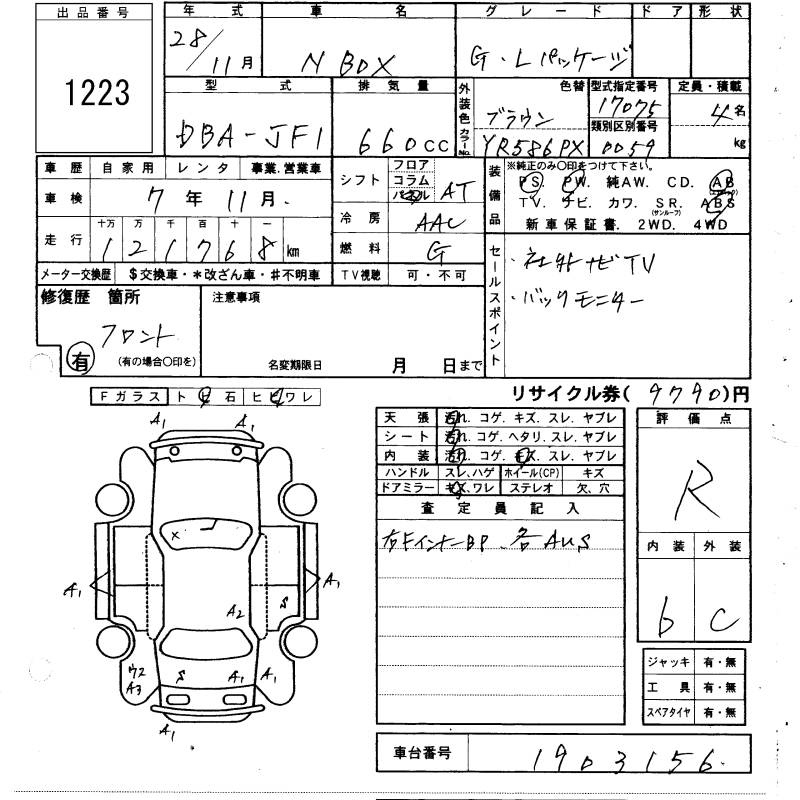 出品番号
1223
年式 車名 グレード ドア 形状
28/11月 N BOX G・Lパッケージ
型式 排気量 外装色 色替 型式指定番号 定員・積載
DBA-JF1 660cc ブラウン 17075 4名
カラーNo. YR586PX 類別区別番号 0059 kg
車歴 自家用 レンタ 事業.営業車
車検 7年11月.
走行 十万 万 千 百 十 一
1 2 1 7 6 8 km
メーター交換歴 $交換車・*改ざん車・#不明車
シフト フロア コラム パネル AT
冷房 AAC
燃料 G
TV視聴 可・不可
装備品 ※純正のみ〇印をつけて下さい。
PS. PW. 純AW. CD. AB
TV. ナビ. カワ. SR. ABS
(サンルーフ)
新車保証書. 2WD. 4WD
修復歴 箇所
フロント
有 (有の場合〇印を)
注意事項
名変期限日 月 日まで
セールスポイント
・社外ナビTV
・バックモニター
Fガラス トビ石 ヒビワレ
リサイクル券(9790)円
天張 汚れ. コゲ. キズ. スレ. ヤブレ
シート 汚れ. コゲ. ヘタリ. スレ. ヤブレ
内装 汚れ. コゲ. キズ. スレ. ヤブレ
ハンドル スレ.ハゲ ホイール(CP) キズ
ドアミラー キズ.ワレ ステレオ 欠.穴
査定員記入
右FインナーBP. 各AUS
評価点
R
内装 外装
b C
ジャッキ 有・無
工具 有・無
スペアタイヤ 有・無
A1 A1
×
A1 A1
S
A2
U2
A3
S A1 A1
A1
車台番号 1903156